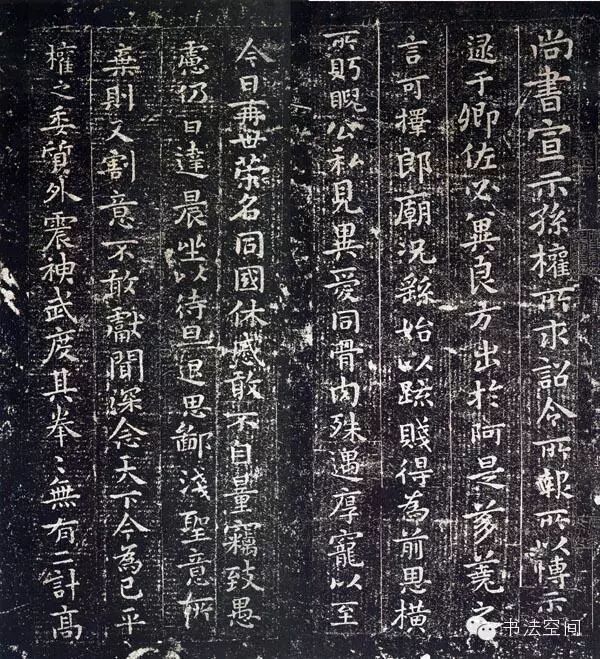 尚書宣示孫權所求詔令所報所以博示
逮于卿佐必冀良方出於阿是芻蕘之
言可擇郎廟況繇始以疏賤得為前恩橫
所眄睨公私見異愛同骨肉殊遇厚寵以至
今日再世榮名同國休慼敢不自量竊致愚
慮仍日達晨坐以待旦退思鄙淺聖意所
棄則又割意不敢獻聞深念天下今為已平
權之委質外震神武度其拳〻無有二計高
书法空间